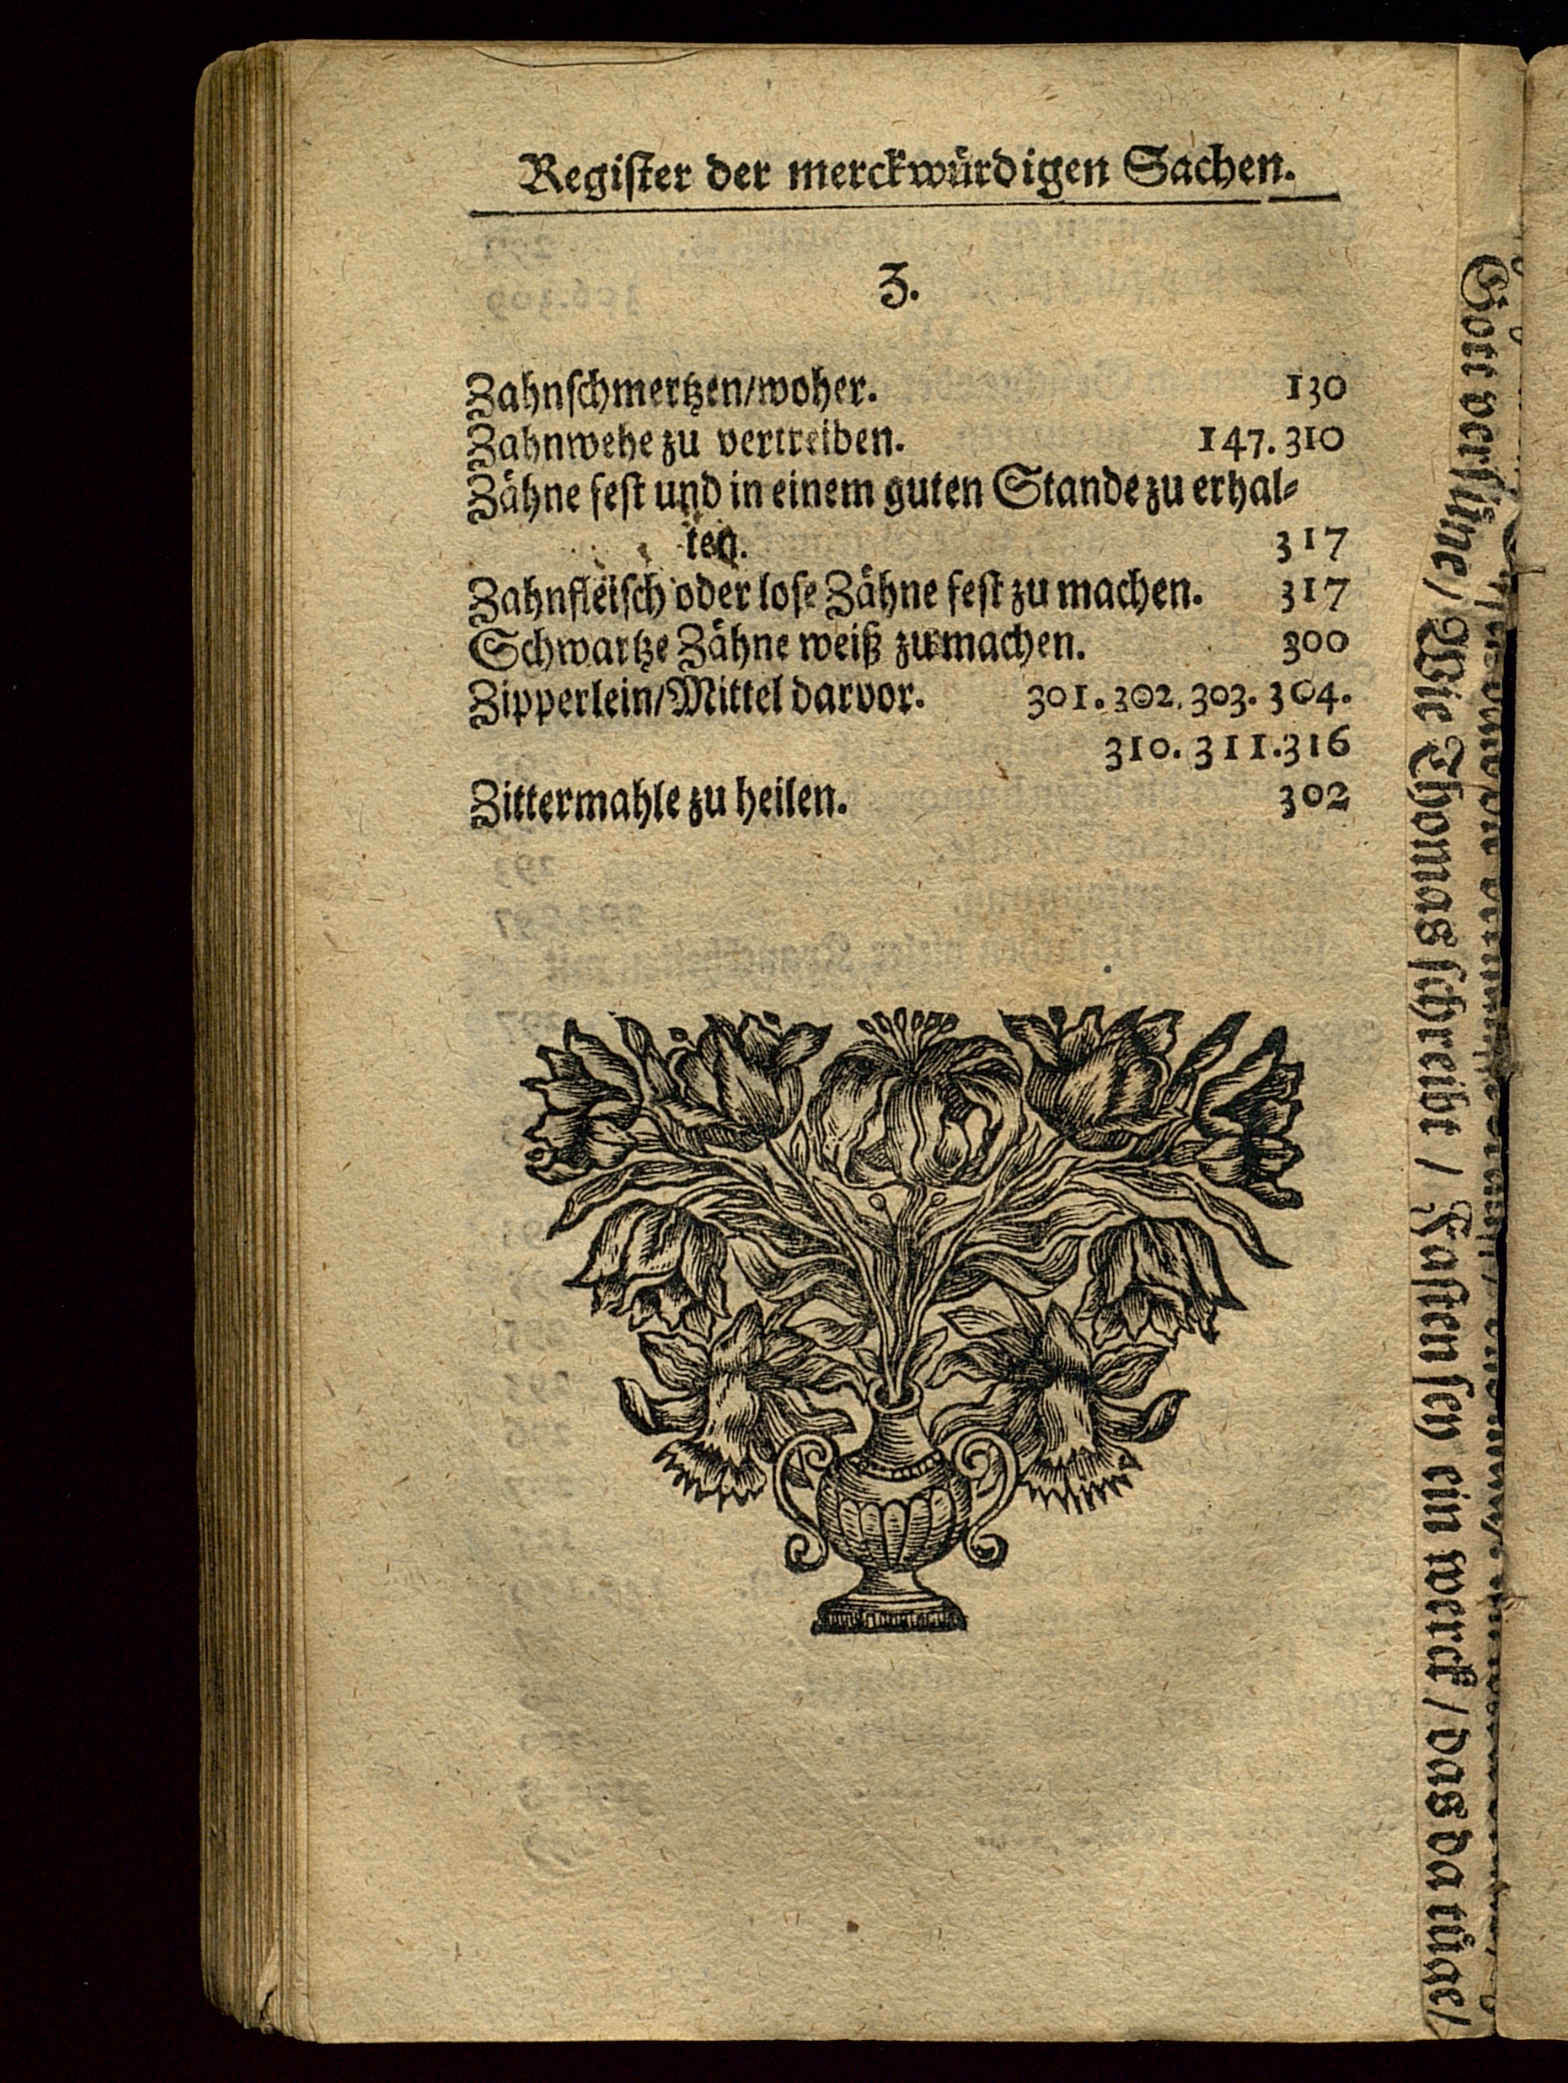 Register der merckwürdigen Sachen.
Z.
Zahnschmertzen/woher. 130
Zahnwehe zu vertreiben. 147. 310
Zähne fest und in einem guten Stande zu erhal-
ten. 317
Zahnfleisch oder lose Zähne fest zu machen. 317
Schwartze Zähne weiß zu machen. 300
Zipperlein/Mittel darvor. 301. 302. 303. 304.
310. 311. 316
Zittermahle zu heilen. 302
Gott versüne/
Wie Thomas schreibt / Fasten sey ein werck / das da tüge/